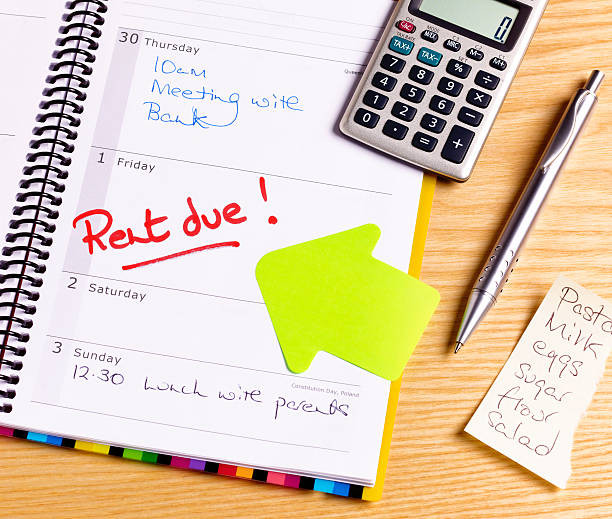 30 Thursday
10am
Meeting with
Bank
1 Friday
Rent due!
2 Saturday
3 Sunday
Constitution Day, Poland
12.30 lunch with parents
0
TAX+
TAX-
%
7
8
9
÷
4
5
6
×
1
2
3
-
0
.
=
+
Pasta
Milk
eggs
sugar
flour
salad